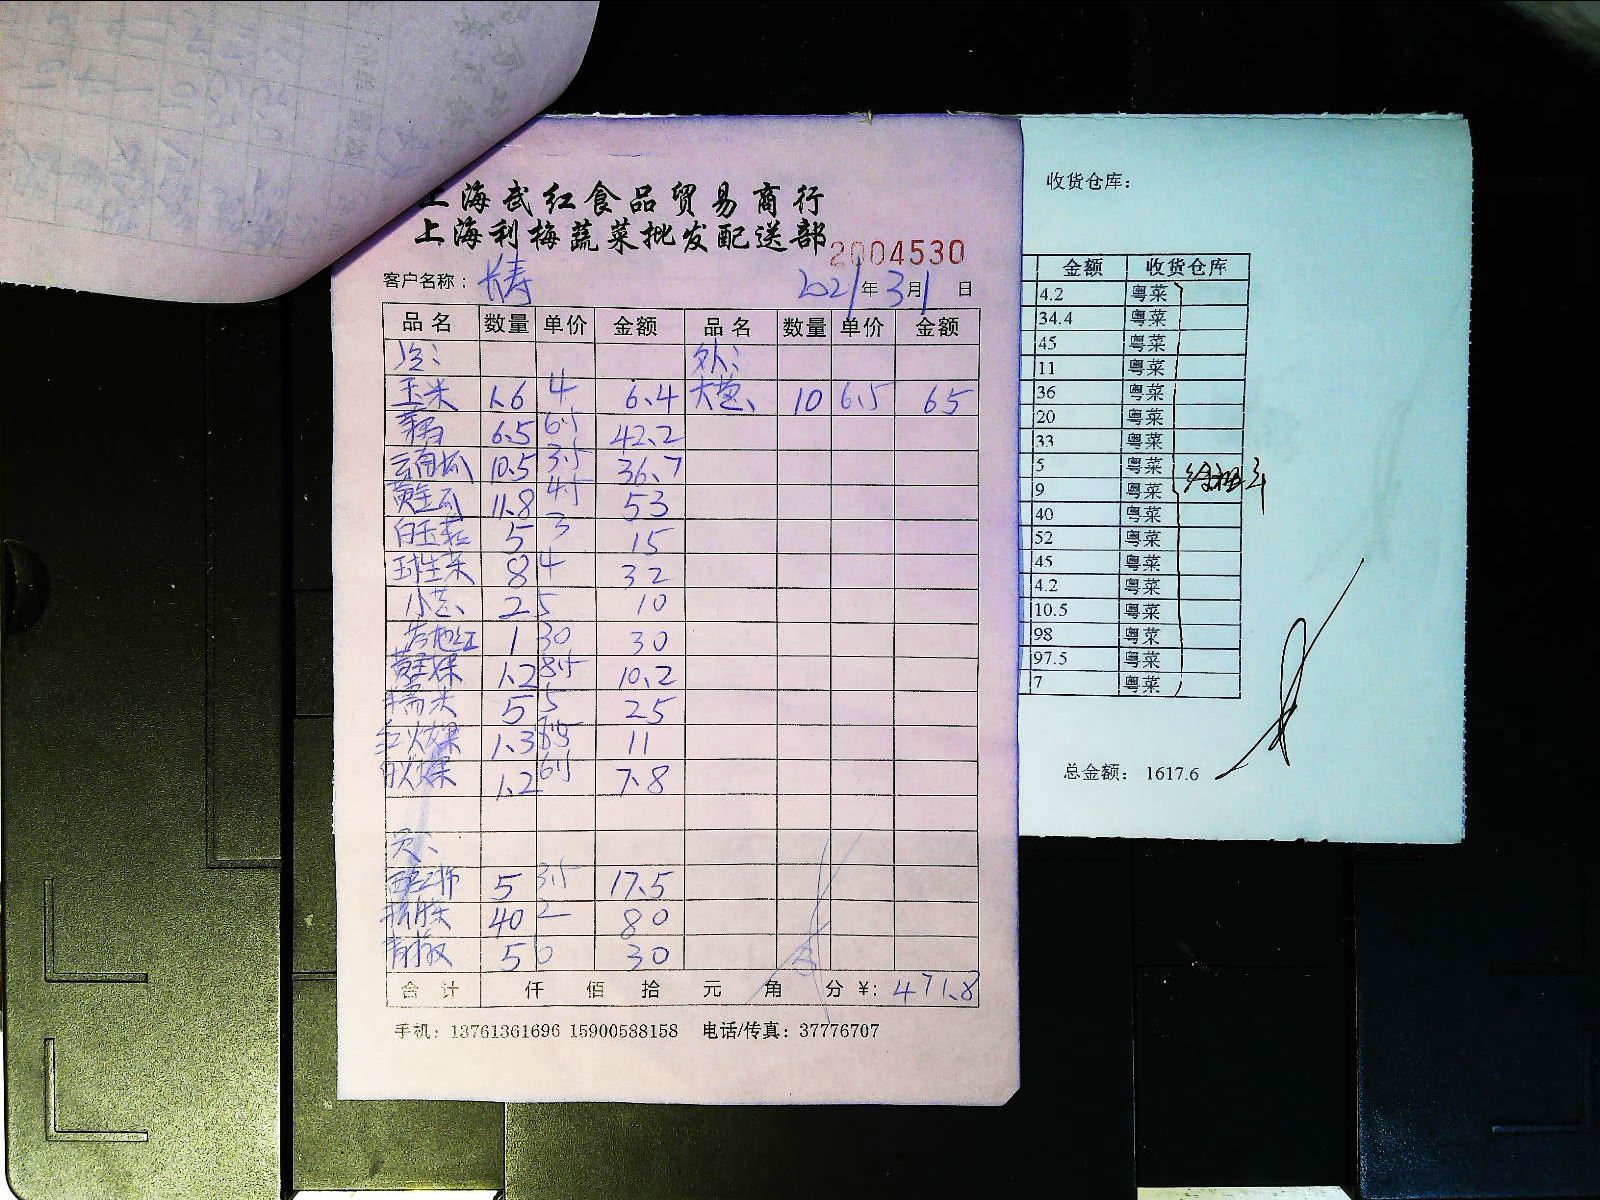 上海武红食品贸易商行
上海利梅蔬菜批发配送部
2004530
客户名称：长寿 2021年3月1日
品名 数量 单价 金额 品名 数量 单价 金额
冷： 外：
玉米 1.6 4 6.4 大葱 10 6.5 65
6.5 6.5 42.2
云南瓜 10.5 3.5 36.7
黄金瓜 11.8 4.5 53
白玉菇 5 3 15
球生菜 8 4 32
小葱 2 5 10
1 30 30
1.2 8.5 10.2
糯米 5 5 25
红火龙果 1.3 8.5 11
白火龙果 1.2 6.5 7.8
点：
西红柿 5 3.5 17.5
40 2 80
青椒 5 6 30
合计 仟 佰 拾 元 角 分 ¥: 471.8
手机：13761361696 15900588158 电话/传真：37776707
收货仓库：
金额 收货仓库
4.2 粤菜
34.4 粤菜
45 粤菜
11 粤菜
36 粤菜
20 粤菜
33 粤菜
5 粤菜
9 粤菜
40 粤菜
52 粤菜
45 粤菜
4.2 粤菜
10.5 粤菜
98 粤菜
97.5 粤菜
7 粤菜
总金额： 1617.6